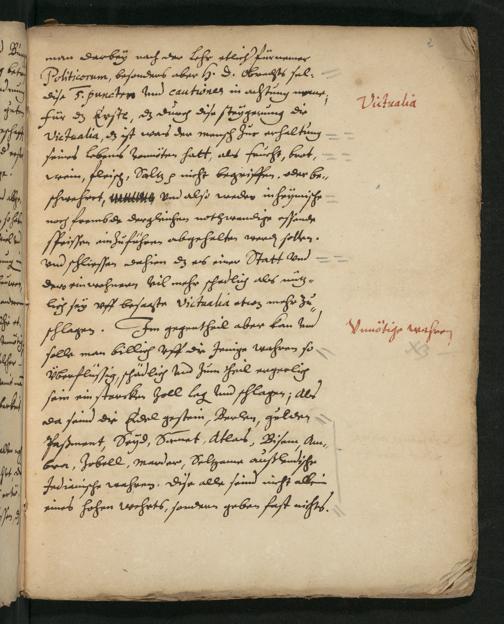 man darbey nach der Lehr etlich fürnemer
Politicorum, besonders aber H. D. Obrechts sel:
dise 5. puncten und cautiones in achtung neme,
für das Erste, das durch dise steygerung die
Victualia, das ist was der mensch zur erhaltung
seines lebens vonnöten hatt, als frücht, brot,
wein, fleisch, Saltz nicht begriffen, oder be-
schwehret, und also weder inheymische
noch frembde dergleichen nothwendige essende
speisen einzuführen abgehalten werden sollen.
und schliessen dahin das es einer Statt und
dero einwohnern vil mehr schedlich als nutz-
lich sey uff besagte Victualia etwas mehr zu
schlagen. Im gegentheil aber kan und
solle man billich uff die Jenige wahren so
überflüssig, schädlich und zum theil ergerlich
sein ein starcken Zoll legen und schlagen; Als
da seind die Edel gestein, Perlen, gulden
Paßment, Seyd, Samet, Atlas, Bisem Am-
bra, Zobell, marder, Seltzame außländische
Indianische wahren. dise alle seind nicht allein
eines hohen wehrts, sondern geben fast nichts.
Victualia
Unnötige wahren